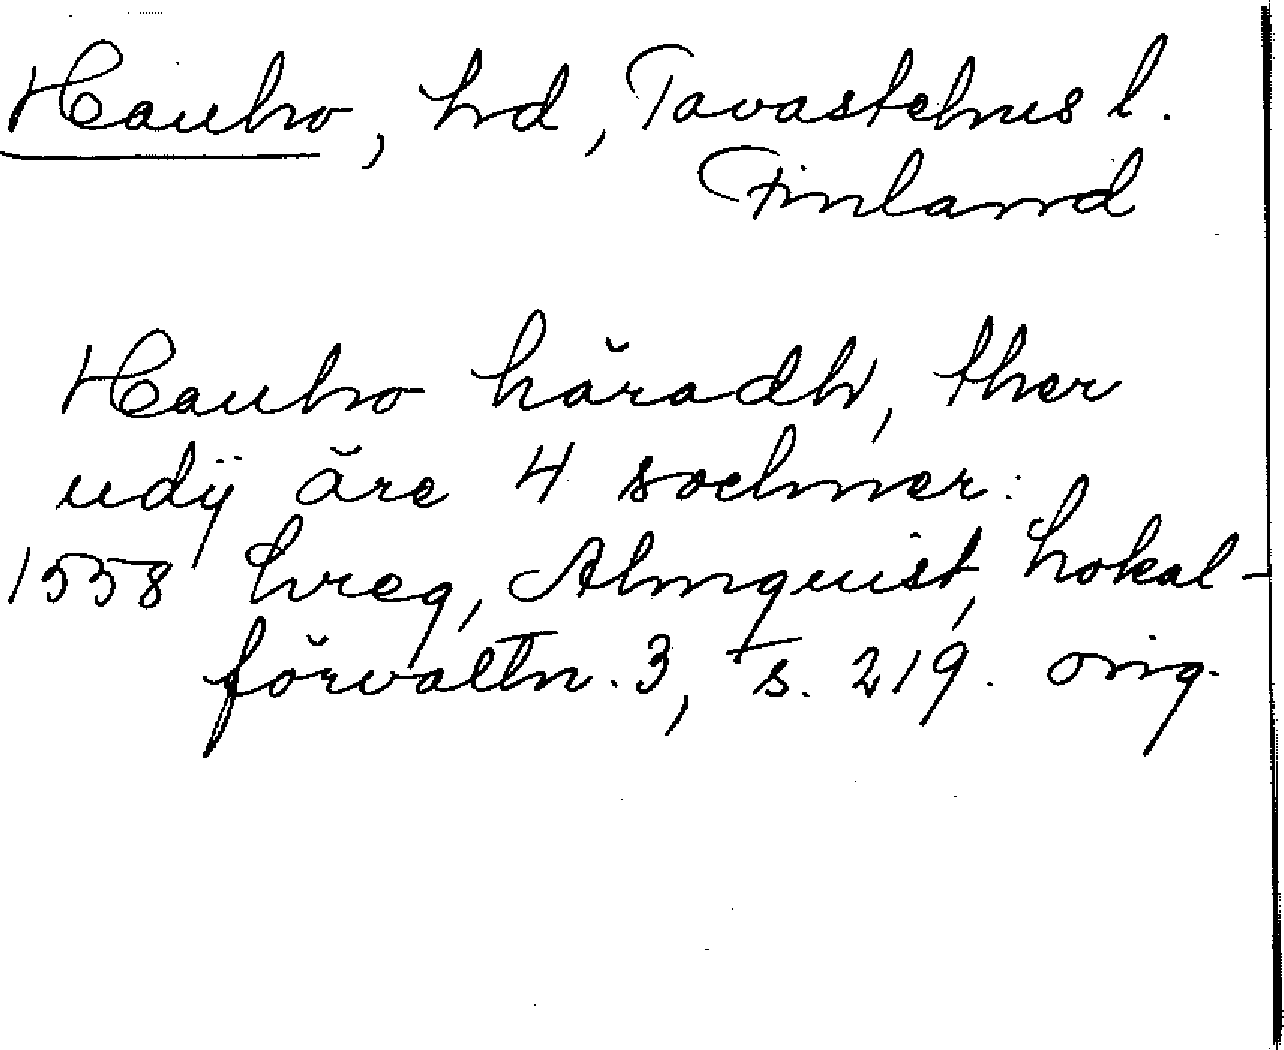 Hauho, hd, Tavastehus l.
Finland
Hauho häradh, ther
udij äre 4 sochner:
1558 hreg, Almquist, Lokal-
förvaltn. 3, s. 219. orig.